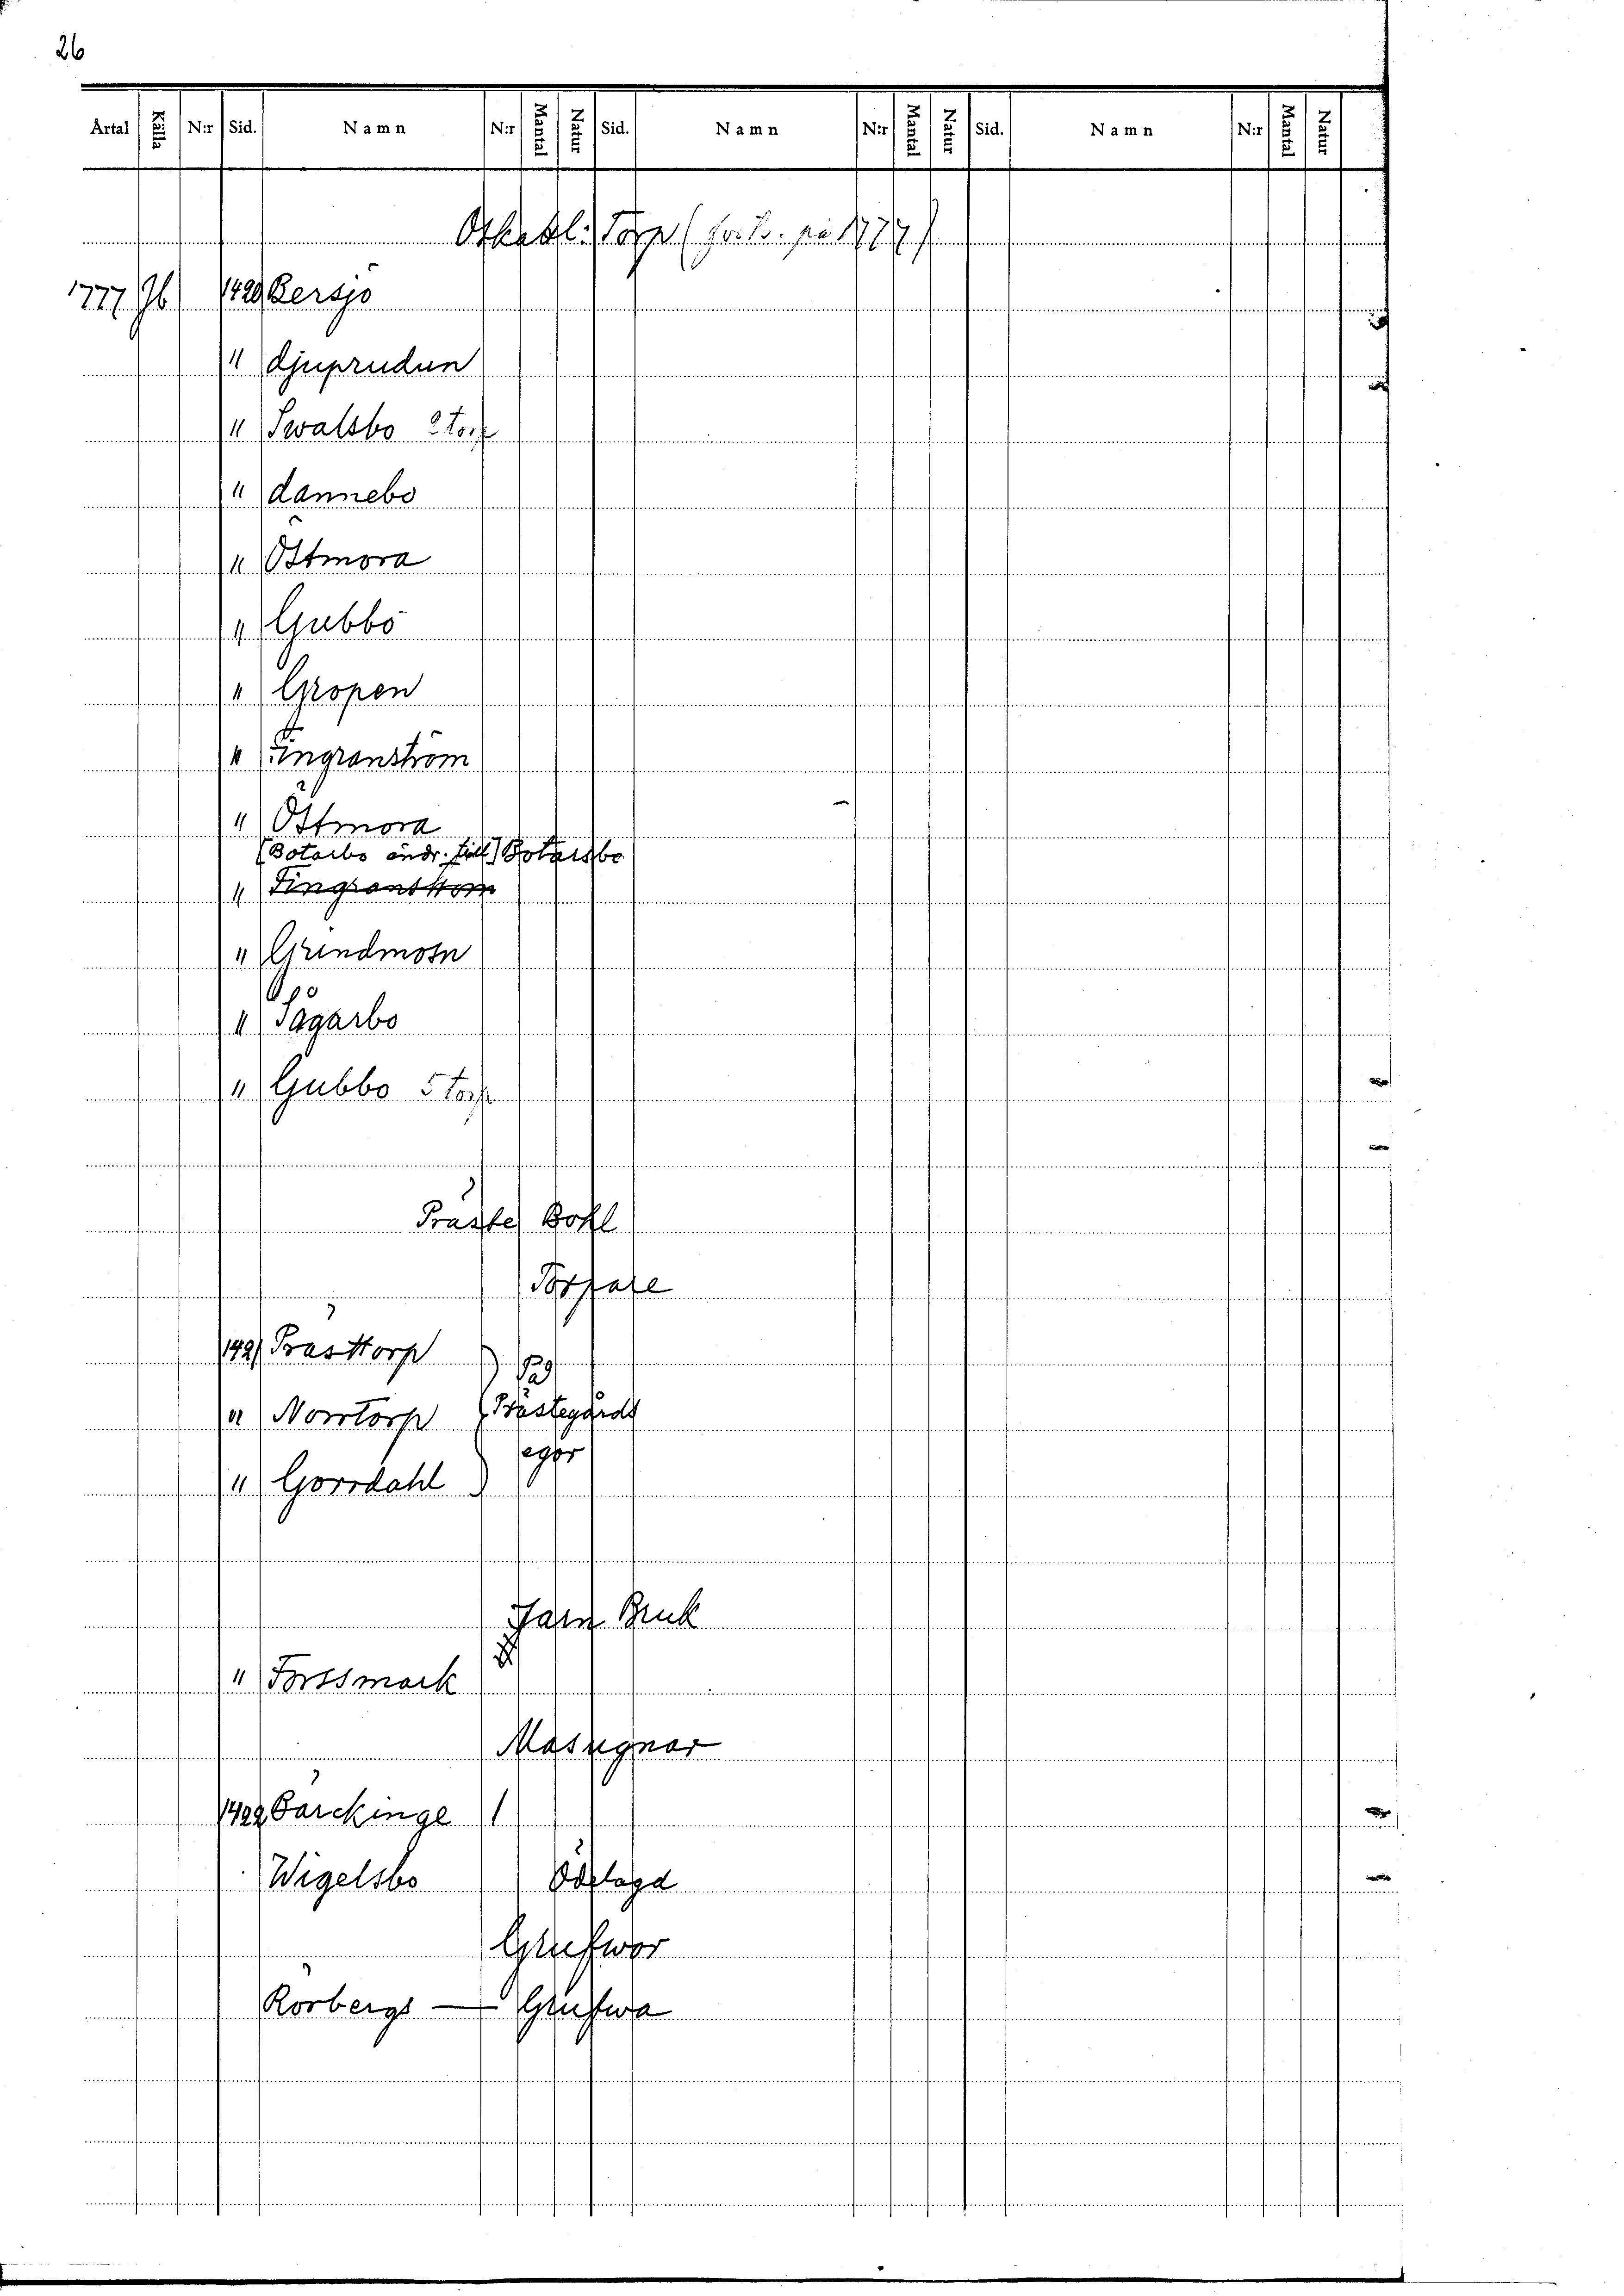 26
Årtal Källa N:r Sid. Namn N:r Mantal Natur Sid. Namn N:r Mantal Natur Sid. Namn N:r Mantal Natur
Torp ( 1777)
1777 Jb 1420 Bersjö
" djuprudun
" Swalsbo 2 torp
" dannebo
" Östmora
" Gubbo
" Gropen
" Tingranström
" Östmora
(Botarbo ändr. till) Botarsbo
" Tingranström
" Grindmosn
" Sågarbo
" Gubbo 5 torp
Präste Bohl
Torpare
1421 Prästtorp
På
" Norrtorp Prästegårds
egor
" Gorrdahl
Jarn Bruk
" Forssmark
Masugnar
1422 Bärckinge 1
Wigelsbo Ödelagd
Grufwor
Rörbergs — Grufwa